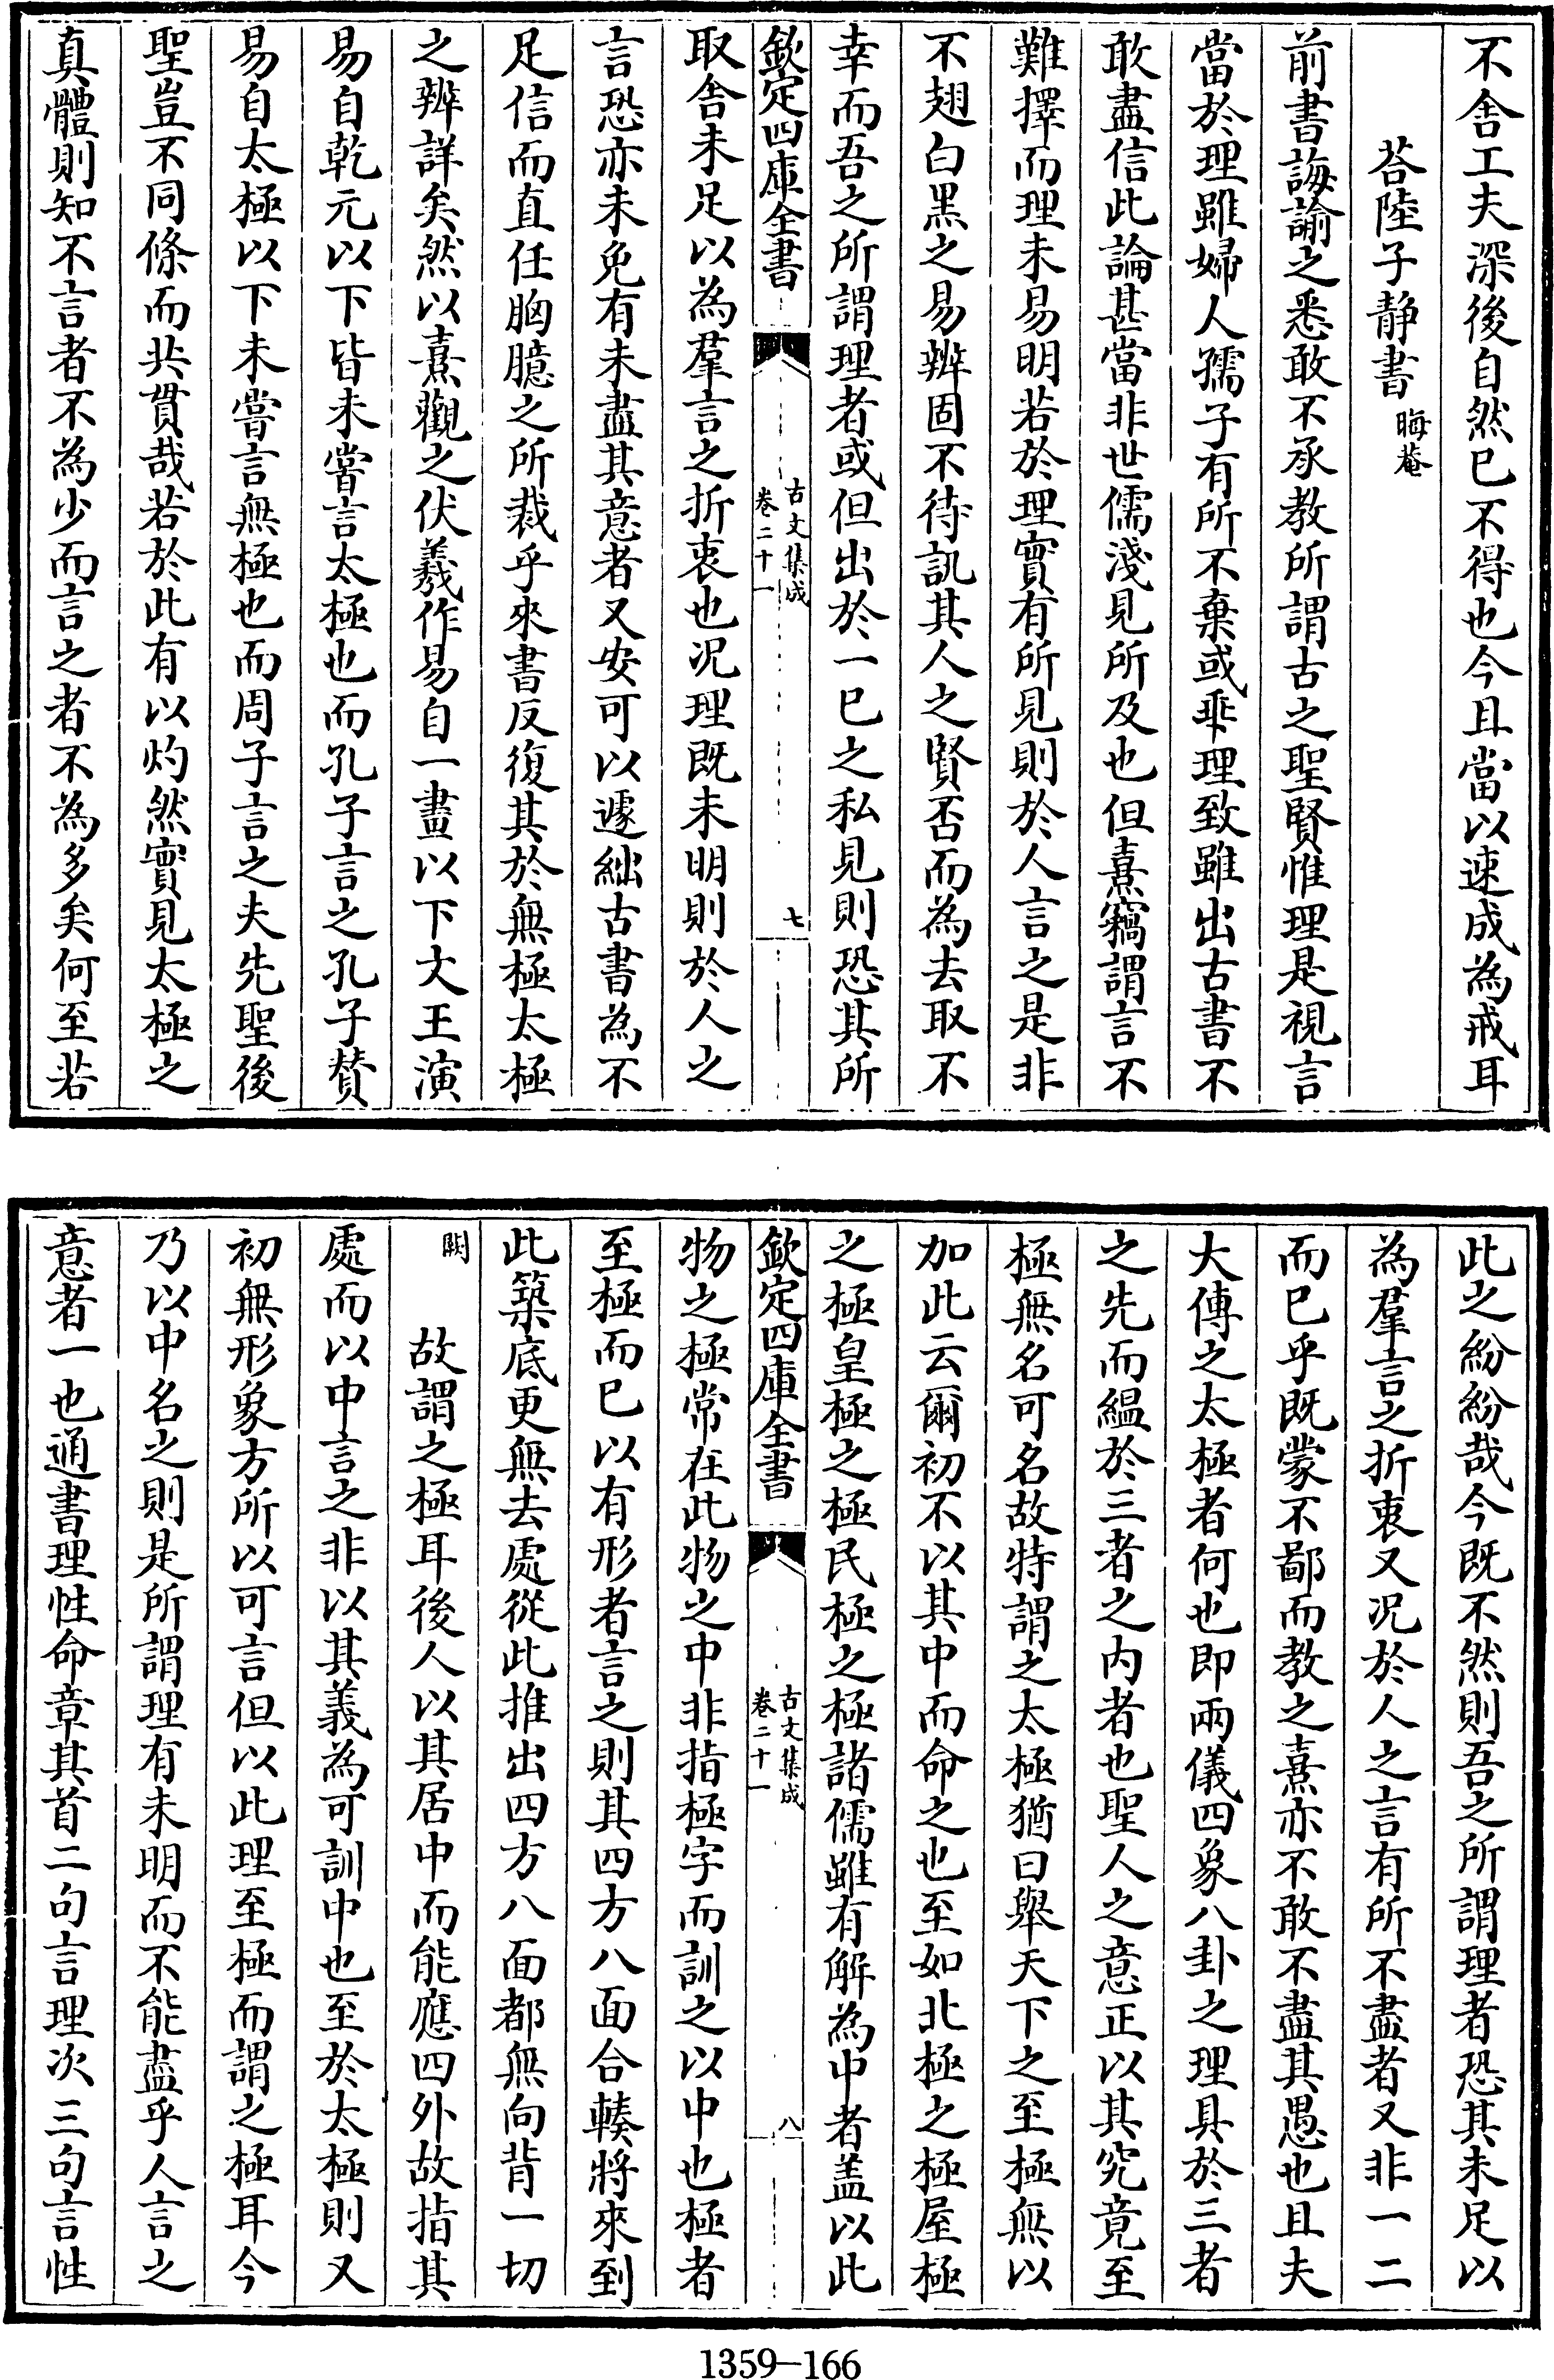 不舎工夫深後自然已不得也今且當以速成為戒耳
荅陸子静書 晦菴
前書誨諭之悉敢不承教所謂古之聖賢惟理是視言
當於理雖婦人孺子有所不棄或乖理致雖出古書不
敢盡信此論甚當非世儒淺見所及也但熹竊謂言不
難擇而理未易明若於理實有所見則於人言之是非
不翅白黒之易辨固不待訊其人之賢否而為去取不
幸而吾之所謂理者或但出於一已之私見則恐其所
欽定四庫全書
古文集成
卷二十一
七
取舎未足以為羣言之折衷也况理既未明則於人之
言恐亦未免有未盡其意者又安可以遽絀古書為不
足信而直任胸臆之所裁乎來書反復其於無極太極
之辨詳矣然以熹觀之伏羲作易自一畫以下文王演
易自乾元以下皆未嘗言太極也而孔子言之孔子贊
易自太極以下未嘗言無極也而周子言之夫先聖後
聖豈不同條而共貫哉若於此有以灼然實見太極之
真體則知不言者不為少而言之者不為多矣何至若
此之紛紛哉今既不然則吾之所謂理者恐其未足以
為羣言之折衷又况於人之言有所不盡者又非一二
而已乎既蒙不鄙而教之熹亦不敢不盡其愚也且夫
大傳之太極者何也即兩儀四象八卦之理具於三者
之先而緼於三者之内者也聖人之意正以其究竟至
極無名可名故特謂之太極猶曰舉天下之至極無以
加此云爾初不以其中而命之也至如北極之極屋極
之極皇極之極民極之極諸儒雖有解為中者盖以此
欽定四庫全書
古文集成
卷二十一
八
物之極常在此物之中非指極字而訓之以中也極者
至極而已以有形者言之則其四方八面合輳將來到
此築底更無去處從此推出四方八面都無向背一切
闕 故謂之極耳後人以其居中而能應四外故指其
處而以中言之非以其義為可訓中也至於太極則又
初無形象方所以可言但以此理至極而謂之極耳今
乃以中名之則是所謂理有未明而不能盡乎人言之
意者一也通書理性命章其首二句言理次三句言性
1359—166